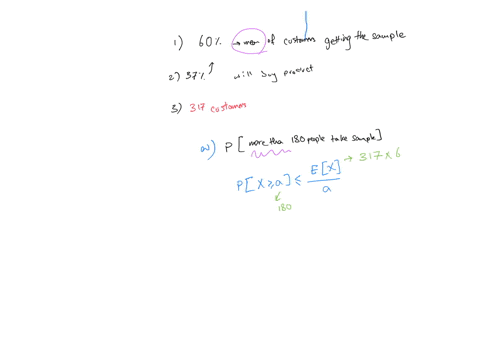 1) 60% → mean of customers getting the sample
2) 37% ↑ will buy product
3) 317 customers
a) P[more than 180 people take sample]
P[X ≥ a] ≤ E[X] / a → 317 x 6
180